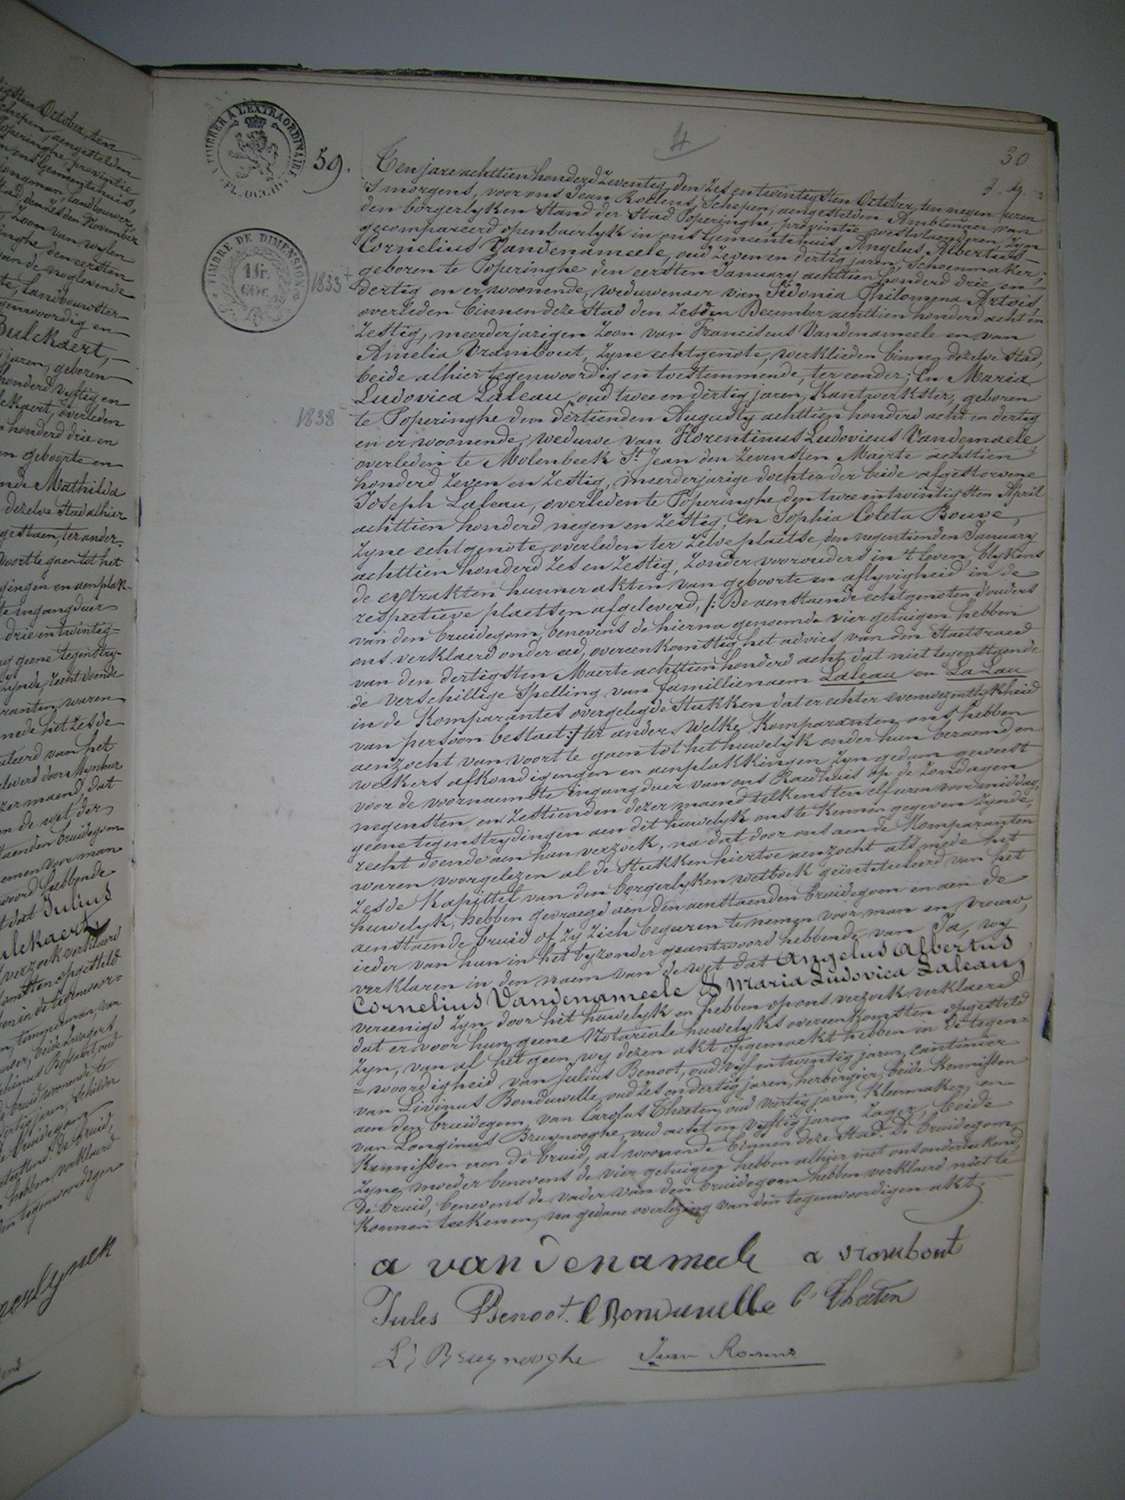 4
30
59.
TIMBRE DE DIMENSION
1833
1838
Ten jare achttien honderd zeventig, den zes en twintigsten October, ten negen uren
'S morgens, voor ons Jean Roelens, Schepen, aengestelden Ambtenaer van
den borgerlyken Stand der Stad Poperinghe, provintie Westvlaenderen, zyn
gecompareerd openbaerlyk in ons Gemeentehuis, Angelus Albertus
Cornelius Vandenameele, oud zeven en dertig jaren, Schoenmaker,
geboren te Poperinghe den eersten January achttien honderd drie en
dertig en er woonende, weduwenaer van Sidonia Philomena Artois,
overleden binnen deze Stad den zesden December achttien honderd acht en
zestig, meerderjarigen zoon van Franciscus Vandenameele en van
Amelia Vrambout, zyne echtgenote, werklieden binnen dezelve Stad,
beide alhier tegenwoordig en toestemmende, ter eender; En Maria
Ludovica Laleau, oud twee en dertig jaren, Kantwerkster, geboren
te Poperinghe den dertienden Augusty achttien honderd acht en dertig
en er woonende, weduwe van Florentinus Ludovicus Vandemaele
overleden te Molenbeek St Jean den zevensten Maerte achttien
honderd zeven en zestig, meerderjarige dochter der beide afgestorvene
Joseph Laleau, overleden te Poperinghe den twee en twintigsten April
achttien honderd negen en zestig, en Sophia Coleta Bouve,
zyne echtgenote, overleden ter zelve plaetse, den negentienden January
achttien honderd zes en zestig, zonder voorouders in 't leven, blykens
de extrakten hunner akten van geboorte en aflyvigheid in de
respective plaetsen afgeleverd, /: De aenstaende echtgenoten, d'ouders
van den bruidegom, benevens de hierna genoemde vier getuigen hebben
ons verklaerd onder eed, overeenkomstig het advies van den Staetsraed
van den dertigsten Maerte achttien honderd acht, dat niet tegenstaende
de verschillige Spelling van familienaem Laleau en La Lau
in de Komparantes overgelegde Stukken dat er echter evenwezentlykheid
van persoon bestaet :/ ter ander. Welke Komparanten ons hebben
aenzocht van voort te gaen tot het huwelyk onder hun beraemd en
welkers afkondigingen en aenplakkingen zyn gedaen geweest
voor de voornaemste ingangduer van ons Raedhuis op de zondagen
negensten en zestienden dezer maend telkens ten elf uren voormiddag,
geene tegenstrydingen aen dit huwelyk ons te kennen gegeven zynde,
recht doende aen hun verzoek, na dat door ons aen de Komparanten
waren voorgelezen al de Stukken hiertoe aenzocht als mede het
zesde Kapittel van den borgerlyken wetboek geïntituleerd van het
huwelyk, hebben gevraegd aen den aenstaenden bruidegom en aen de
aenstaende bruid of zy zich begeeren te nemen voor man en vrouw,
ieder van hun in het byzonder geantwoord hebbende van Ja, wy
verklaren in den naem van de wet dat Angelus Albertus
Cornelius Vandenameele & Maria Ludovica Laleau,
vereenigd zyn door het huwelyk en hebben op ons verzoek verklaerd
dat er voor hun geene Notariale huwelyks overeenkomsten opgesteld
zyn, van al het geen wy dezen akt opgemaekt hebben in de tegen=
=woordigheid van Julius Benoot, oud vyf en twintig jaren, cantinier
van Livinus Bonduwelle, oud zes en dertig jaren, herbergier, beide Kennissen
aen den bruidegom, van Carolus Theeten, oud veertig jaren, Kleermaker, en
van Longinus Bruynooghe, oud acht en vyftig jaren zager, beide
Kennissen aen de bruid, al woonende binnen deze Stad. De bruidegom,
zyne moeder benevens de vier getuigen hebben alhier met ons onderteekend,
De bruid, benevens de vader van den bruidegom hebben verklaerd niet te
Konnen teekenen, na gedane overlezing van den tegenwoordigen akt,
a vandenameele a vrambout
Jules Benoot. L Bonduwelle C Theeten
L: Bruynooghe Jean Roelens